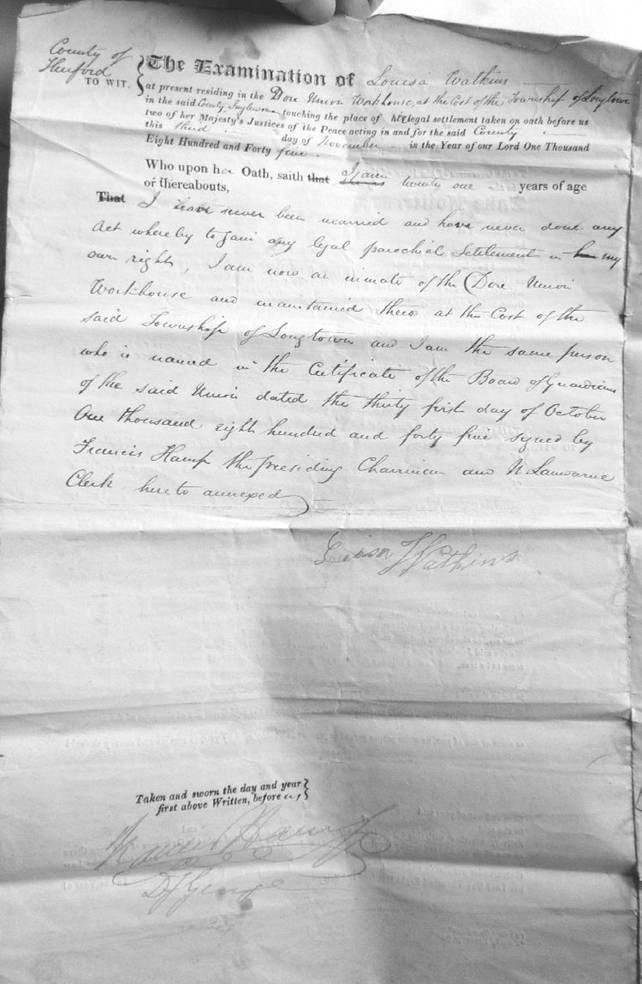 County of
Hereford
TO WIT.
The Examination of Louisa Watkins
at present residing in the Dore Union Workhouse, at the Cost of the Township of Longtown
in the said County touching the place of her legal settlement taken on oath before us
two of her Majesty's Justices of the Peace acting in and for the said County
this third day of November in the Year of our Lord One Thousand
Eight Hundred and Forty five.
Who upon her Oath, saith that I am twenty one years of age
or thereabouts,
That I have never been married and have never done any
Act whereby to gain any legal parochial Settlement in her my
own right, I am now an inmate of the Dore Union
Workhouse and maintained there at the Cost of the
said Township of Longtown and I am the same person
who is named in the Certificate of the Board of Guardians
of the said Union dated the thirty first day of October
One thousand eight hundred and forty five signed by
Francis Hamp the presiding Chairman and N Lanwarne
Clerk hereto annexed
Louisa Watkins
Taken and sworn the day and year
first above Written, before us,